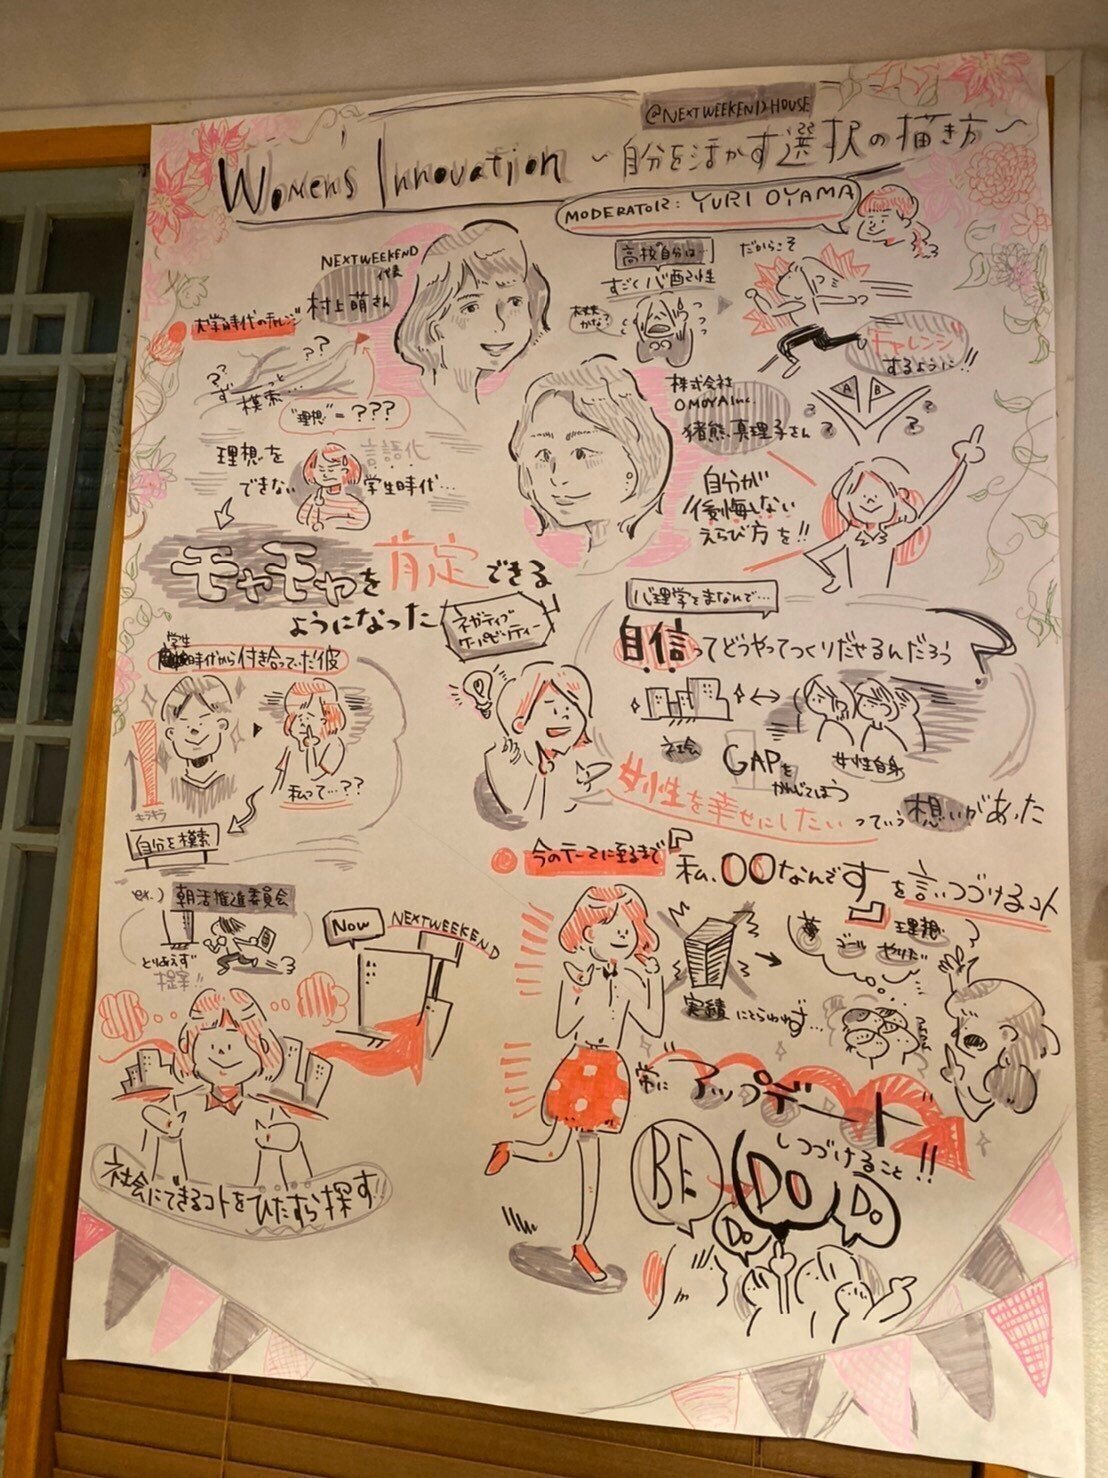 @NEXTWEEKEND HOUSE
Women's Innovation
~自分を活かす選択の描き方~
MODERATOR: YURI OYAMA
NEXTWEEKEND
代表
村上萌さん
大学時代のチャレンジ
??
??
ず〜っと
模索...
"理想"=???
理想を
言語化
できない
学生時代...
モヤモヤを肯定できる
ようになった
ネガティブ
ケーパビリティー
学生
時代から付き合っていた彼
キラキラ
私って...??
自分を模索
ex.)
朝活推進委員会
とりあえず
提案!!
Now
NEXTWEEKEND
社会にできるコトをひたすら探す!!
高校自分は...
すごく心配性
大丈夫
かな?
だからこそ
チャレンジ
するように!!
株式会社
OMOYA Inc.
猪熊真理子さん
A
B
自分が
後悔しない
えらび方を!!
心理学をまなんで...
自信ってどうやってつくりだせるんだろう
社会
女性自身
GAPを
かんじてほう
女性を幸せにしたいっていう想いがあった
今のテーマに至るまで
「私、〇〇なんです」を言いつづけるコト
実績にとらわれず...
夢
ゴール
理想
やりたい
常にアップデート
しつづけること!!
BE
DO
DO
DO